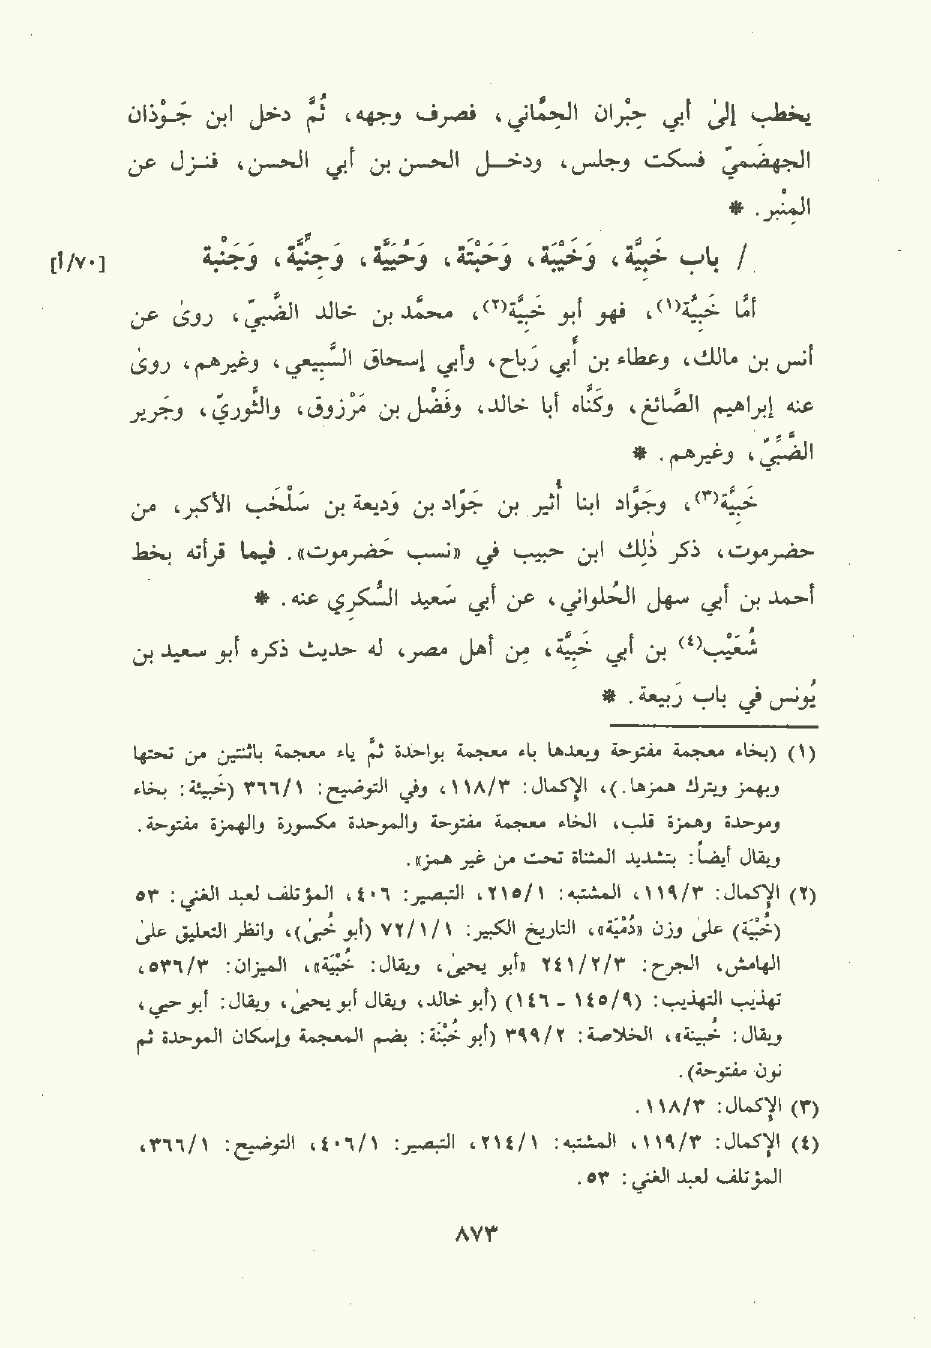 يخطب إلىٰ أبي جِبْران الحِمَّاني، فصرف وجهه، ثُمَّ دخل ابن جَـوْذان
الجهضَميّ فسكت وجلس، ودخـل الحسن بن أبي الحسن، فنـزل عن
المِنْبر. *
/ باب خَبِيَّة، وَخَيْبَة، وَحَبْتَة، وَحُيَيَّة، وَجِنِّيَّة، وَجَنْبة [٧٠/أ]
أمَّا خَبِيَّة(١)، فهو أبو خَبِيَّة(٢)، محمَّد بن خالد الضَّبيّ، روىٰ عن
أنس بن مالك، وعطاء بن أبي رَباح، وأبي إسحاق السَّبِيعي، وغيرهم، روىٰ
عنه إبراهيم الصَّائغ، وكَنَّاه أبا خالد، وفَضْل بن مَرْزوق، والثَّوريّ، وجَرير
الضَّبِّيّ، وغيرهم. *
خَبِيَّة(٣)، وجَوَّاد ابنا أُثير بن جَوّاد بن وَديعة بن شَلْخَب الأكبر، من
حضرموت، ذكر ذٰلِك ابن حبيب في «نسب حَضرموت». فيما قرأته بخط
أحمد بن أبي سهل الحُلواني، عن أبي سَعيد السُّكرِي عنه. *
شُعَيْب(٤) بن أبي خَبِيَّة، مِن أهل مصر، له حديث ذكره أبو سعيد بن
يُونس في باب رَبيعة. *
(١) (بخاء معجمة مفتوحة وبعدها باء معجمة بواحدة ثمَّ ياء معجمة باثنتين من تحتها
وبهمز ويترك همزها.)، الإكمال: ٣/١١٨، وفي التوضيح: ١/٣٦٦ (خَبيئة: بخاء
وموحدة وهمزة قلب، الخاء معجمة مفتوحة والموحدة مكسورة والهمزة مفتوحة.
ويقال أيضاً: بتشديد المثناة تحت من غير همز».
(٢) الإكمال: ٣/١١٩، المشتبه: ١/٢١٥، التبصير: ٤٠٦، المؤتلف لعبد الغني: ٥٣
(خُبْيَة) علىٰ وزن «دُمْيَة»، التاريخ الكبير: ١/١/٧٢ (أبو خُبَىٰ)، وانظر التعليق علىٰ
الهامش، الجرح: ٣/٢/٢٤١ «أبو يحيىٰ، ويقال: خُبْيَة»، الميزان: ٣/٥٣٦،
تهذيب التهذيب: (٩/١٤٥ - ١٤٦) (أبو خالد، ويقال أبو يحيىٰ، ويقال: أبو حيي،
ويقال: خُبينة»، الخلاصة: ٢/٣٩٩ (أبو خُبْنَة: بضم المعجمة وإسكان الموحدة ثم
نون مفتوحة).
(٣) الإكمال: ٣/١١٨.
(٤) الإكمال: ٣/١١٩، المشتبه: ١/٢١٤، التبصير: ١/٤٠٦، التوضيح: ١/٣٦٦،
المؤتلف لعبد الغني: ٥٣.
٨٧٣